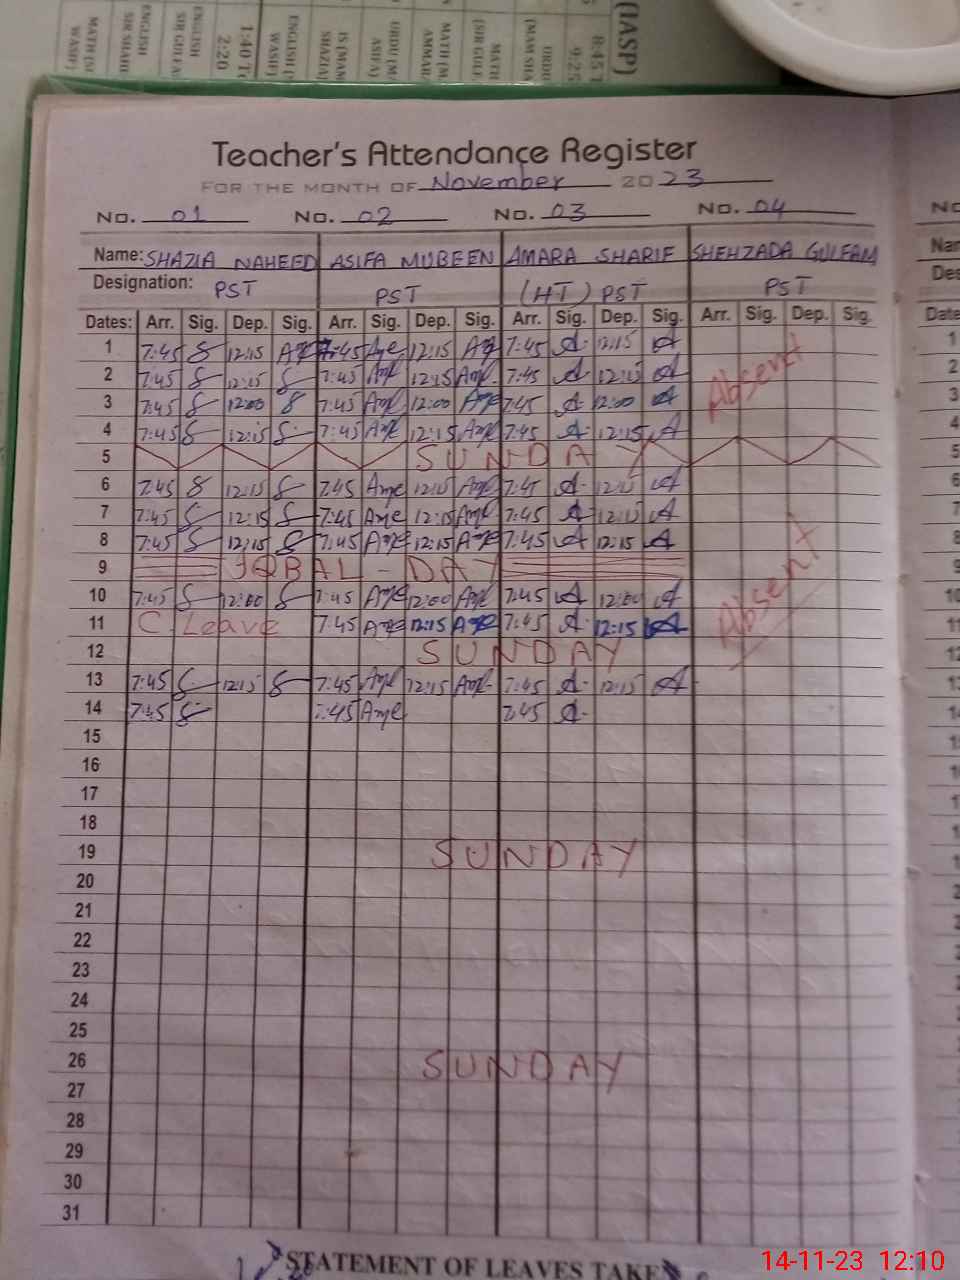 (IASP)
8:45 T
9:25
1:40 To
2:20
URDU
(MAM SHA
MATH
(SIR GULF
MATH (M
AMMAR
URDU (M
ASIFA)
IS (MAM
SHAZIA)
ENGLISH (
WASIF)
ENGLISH
SIR GULFA
ENGLISH
SIR SHAHI
MATH (SI
WASIF)
Teacher's Attendance Register
FOR THE MONTH OF November 2023
No. 01 No. 02 No. 03 No. 04
Name: SHAZIA NAHEED ASIFA MUBEEN AMARA SHARIF SHEHZADA GULFAM
Designation: PST PST (HT) PST PST
Dates: Arr. Sig. Dep. Sig. Arr. Sig. Dep. Sig. Arr. Sig. Dep. Sig. Arr. Sig. Dep. Sig.
1 7:45 12:15 7:45 12:15 7:45 12:15
2 7:45 12:15 7:45 12:15 7:45 12:15 Absent
3 7:45 12:00 7:45 12:00 7:45 12:00
4 7:45 12:15 7:45 12:15 7:45 12:15
5 SUNDAY
6 7:45 12:15 7:45 12:15 7:45 12:15
7 7:45 12:15 7:45 12:15 7:45 12:15
8 7:45 12:15 7:45 12:15 7:45 12:15
9 IQBAL - DAY
10 7:45 12:00 7:45 12:00 7:45 12:00 Absent
11 C. Leave 7:45 12:15 7:45 12:15
12 SUNDAY
13 7:45 12:15 7:45 12:15 7:45 12:15
14 7:45 7:45 7:45
15
16
17
18
19 SUNDAY
20
21
22
23
24
25
26 SUNDAY
27
28
29
30
31
STATEMENT OF LEAVES TAKE
14-11-23 12:10